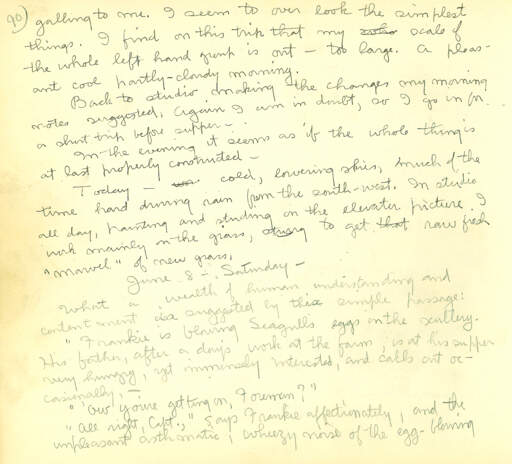 90) galling to me. I seem to over look the simplest
things. I find on this trip that my scale of
the whole left hand group is out – too large. A pleas-
ant cool partly-cloudy morning.
Back to studio making the changes my morning
notes suggested, Again I am in doubt, so I go in for
a short trip before supper –
In the evening it seems as if the whole thing is
at last properly constructed –
Today – cold, lowering skies, much of the
time hard driving rain from the south-west. In studio
all day, painting and studying on the elevator picture. I
work mainly on the grass, trying to get that raw fresh
"marvel" of new grass,
June 8 – Saturday –
What a wealth of human understanding and
contentment is suggested by this simple passage:
"Frankie is blowing Seagulls eggs in the scullery.
His father, after a day's work at the farm, is at his supper
very hungry, yet immensely interested, and calls out oc-
casionally, –
"'Ow you're getting on, Foreman?"
"All right, Capt.," says Frankie affectionately, and the
unpleasant asthmatic, wheezy noise of the egg-blowing